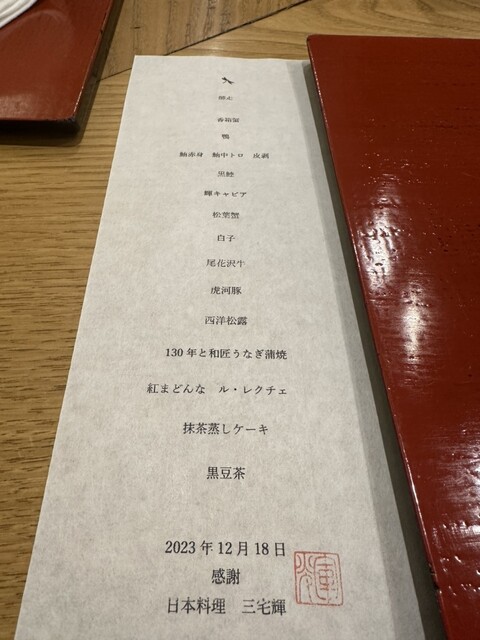 香箱蟹
鴨
鮪赤身　鮪中トロ　皮剥
黒鮑
輝キャビア
松葉蟹
白子
尾花沢牛
虎河豚
西洋松露
130年と和匠うなぎ蒲焼
紅まどんな　ル・レクチェ
抹茶蒸しケーキ
黒豆茶
2023年12月18日
感謝
日本料理　三宅輝
輝